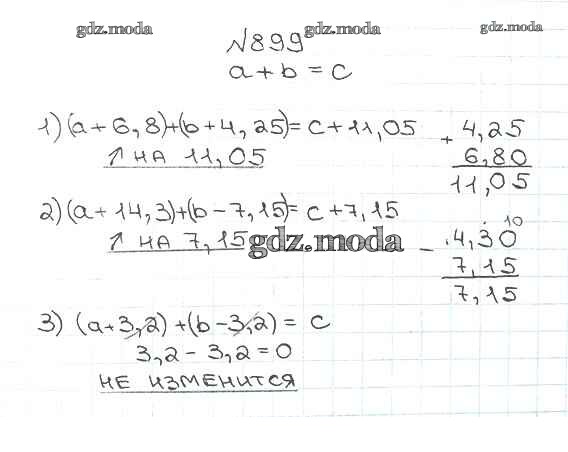 gdz.moda gdz.moda gdz.moda
№899
a + b = c
1) (a + 6,8)+(b + 4,25)= c + 11,05
↑ НА 11,05
+ 4,25
6,80
11,05
2) (a + 14,3)+(b - 7,15)= c + 7,15
↑ НА 7,15
gdz.moda
10
- .4,30
7,15
7,15
3) (a + 3,2) + (b - 3,2) = c
3,2 - 3,2 = 0
НЕ ИЗМЕНИТСЯ